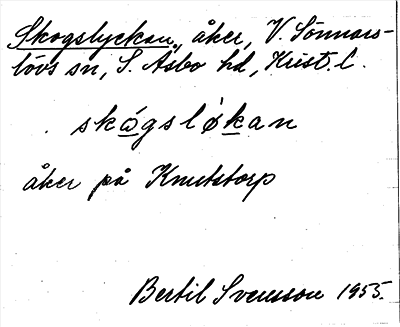 Skogslyckan, åker, V. Sönnars-
lövs sn, S. Åsbo hd, Krist. l.
skógsløkan
åker på Knutstorp
Bertil Svensson 1955.